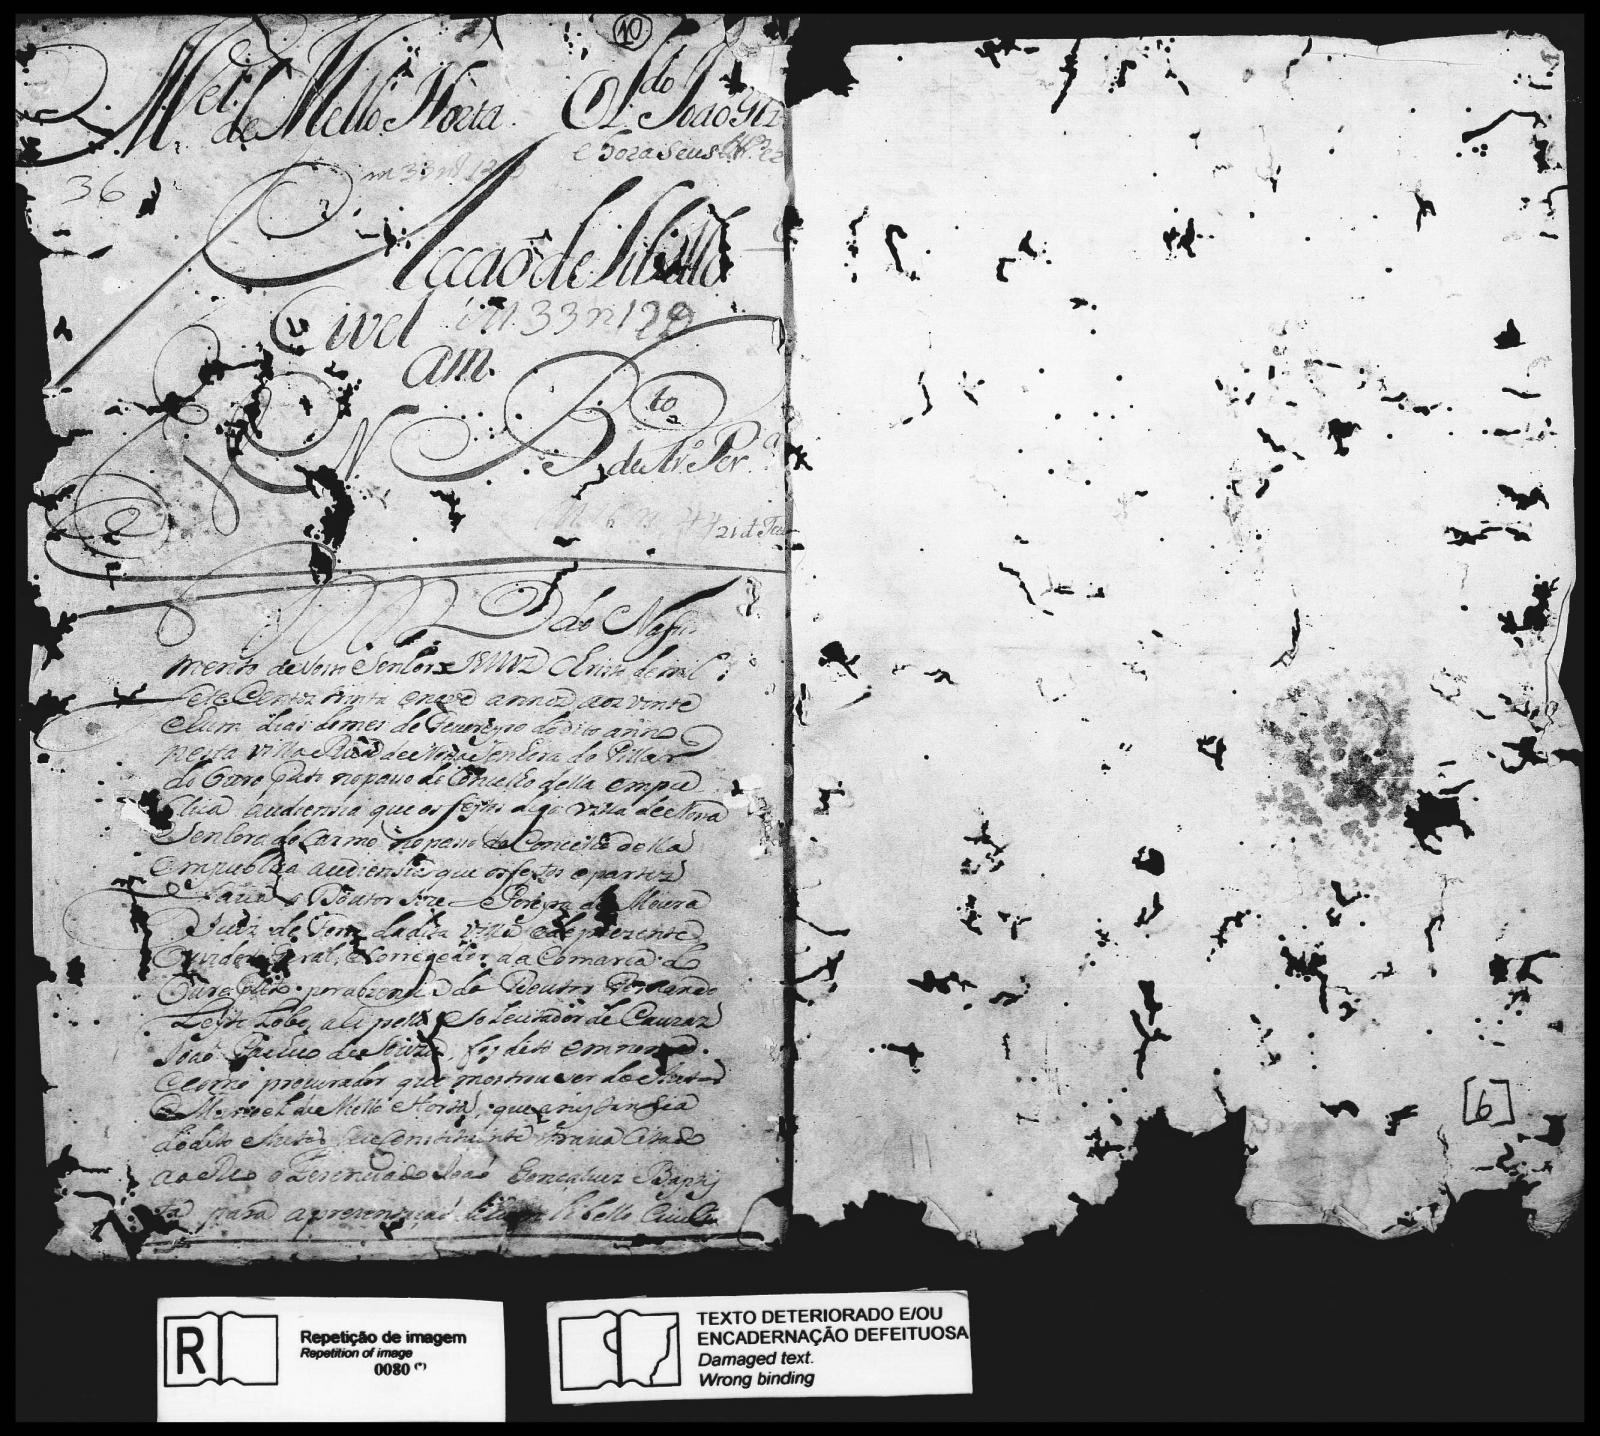 10
M.el de Mello Horta. O L.do João Glz
e hora seus
36
Acção de Libello
Civel m 33 n 129
am.
N B.to
de Ar.º Per.ª
21 d Feu
Do Nasci
mento de Nosso Senhor Christo de mil
e sete Centos trinta e nove annos aos vinte
e hum dias do mes de Feuereyro do dito anno
nesta villa Rica de Nossa Senhora do Pillar
do Ouro Preto no passo do Concelho della em pu
blica audiencia que os feytos digo villa de Nossa
Senhora do Carmo no passo do Concelho della
em publica audiencia que os feytos e partes
fazia o Doutor Jose Pereyra de Moura
Juiz de Fora da dita villa e de prezente
Ouvidor Geral, e Corregedor da Comarca do
Ouro Preto por abzencia do Doutor Fernando
Leyte Lobo, ali pello Solecitador de Cauzas
João de Souza, foy dito em nome
e como procurador que mostrou ser do Autor
Manoel de Mello Horta, que a
do dito Autor seu Constituinte trazia Citado
ao Reo o Lecenciado João Gonçalues Baptis
ta para a prezentação de hum libello Ciuel
[6]
R
Repetição de imagem
Repetition of image
0080 (*)
TEXTO DETERIORADO E/OU
ENCADERNAÇÃO DEFEITUOSA
Damaged text.
Wrong binding